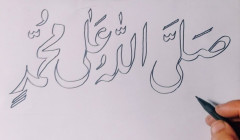 صَلَّى اللّٰهُ عَلَى مُحَمَّدٍ